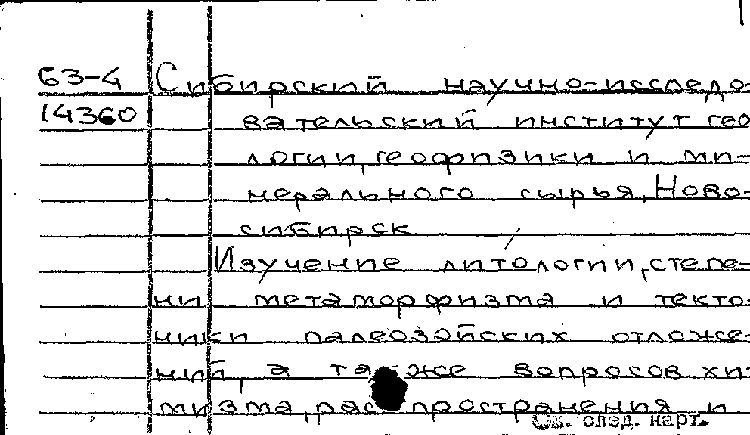 63-4 Сибирский научно-исследо-
14360 вательский институт гео
логии, геофизики и ми-
нерального сырья, Ново-
сибирск
Изучение литологии, степе-
ни метаморфизма и текто-
ники палеозойских отложе-
ний, а также вопросов хи
мизма, распространения и
См. след. карт.